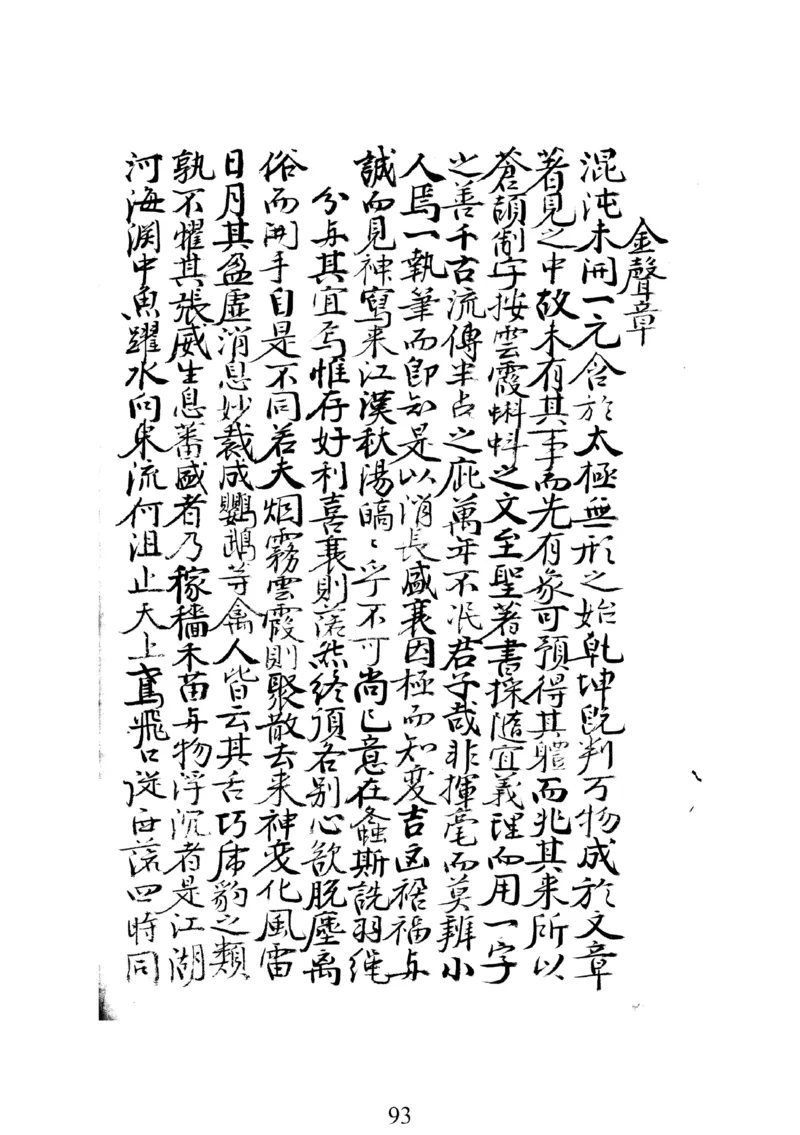 金聲章
混沌未開一元含於太極無形之始乾坤既判万物成於文章
着見之中故未有其事而先有象可預得其體而兆其来所以
蒼頡制字按雲霞蝌蚪之文至聖著書採隨宜義理而用一字
之善千古流傳半占之庇萬年不泯君子哉非揮毫而莫辨小
人焉一執筆而即知是以消長盛衰因極而知変吉凶禍福与
誠而見神寫来江漢秋陽皜〻乎不可尚已意在螽斯詵羽繩
分与其宜焉惟存好利喜衰則落然終須各别心欲脱塵离
俗而開手自是不同若夫烟霧雲霞則聚散去来神変化風雷
日月其盈虛消息妙裁成鸚鵡等禽人皆云其舌巧乕豹之類
孰不懼其張威生息蕃盛者乃稼穡禾苗与物浮沉者是江湖
河海渊中魚躍水向東流何沮止天上鳶飛口從西落四時同
93